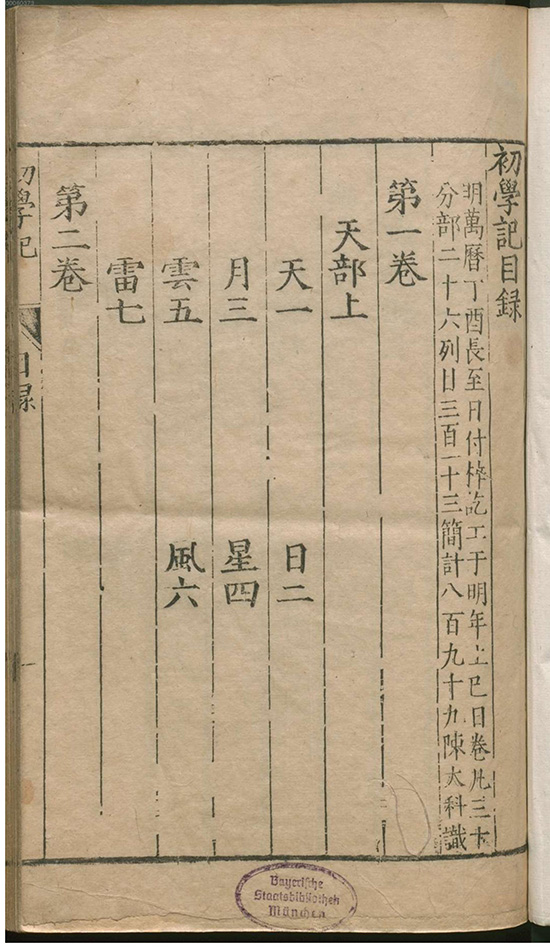 初學記目録
明萬曆丁酉長至日付梓訖工于明年上巳日卷凡三十
分部二十六列目三百一十三簡計八百九十九陳大科識
第一卷
天部上
天一 日二
月三 星四
雲五 風六
雷七
第二卷
初學記 目録
Bayerische
Staatsbibliothek
München